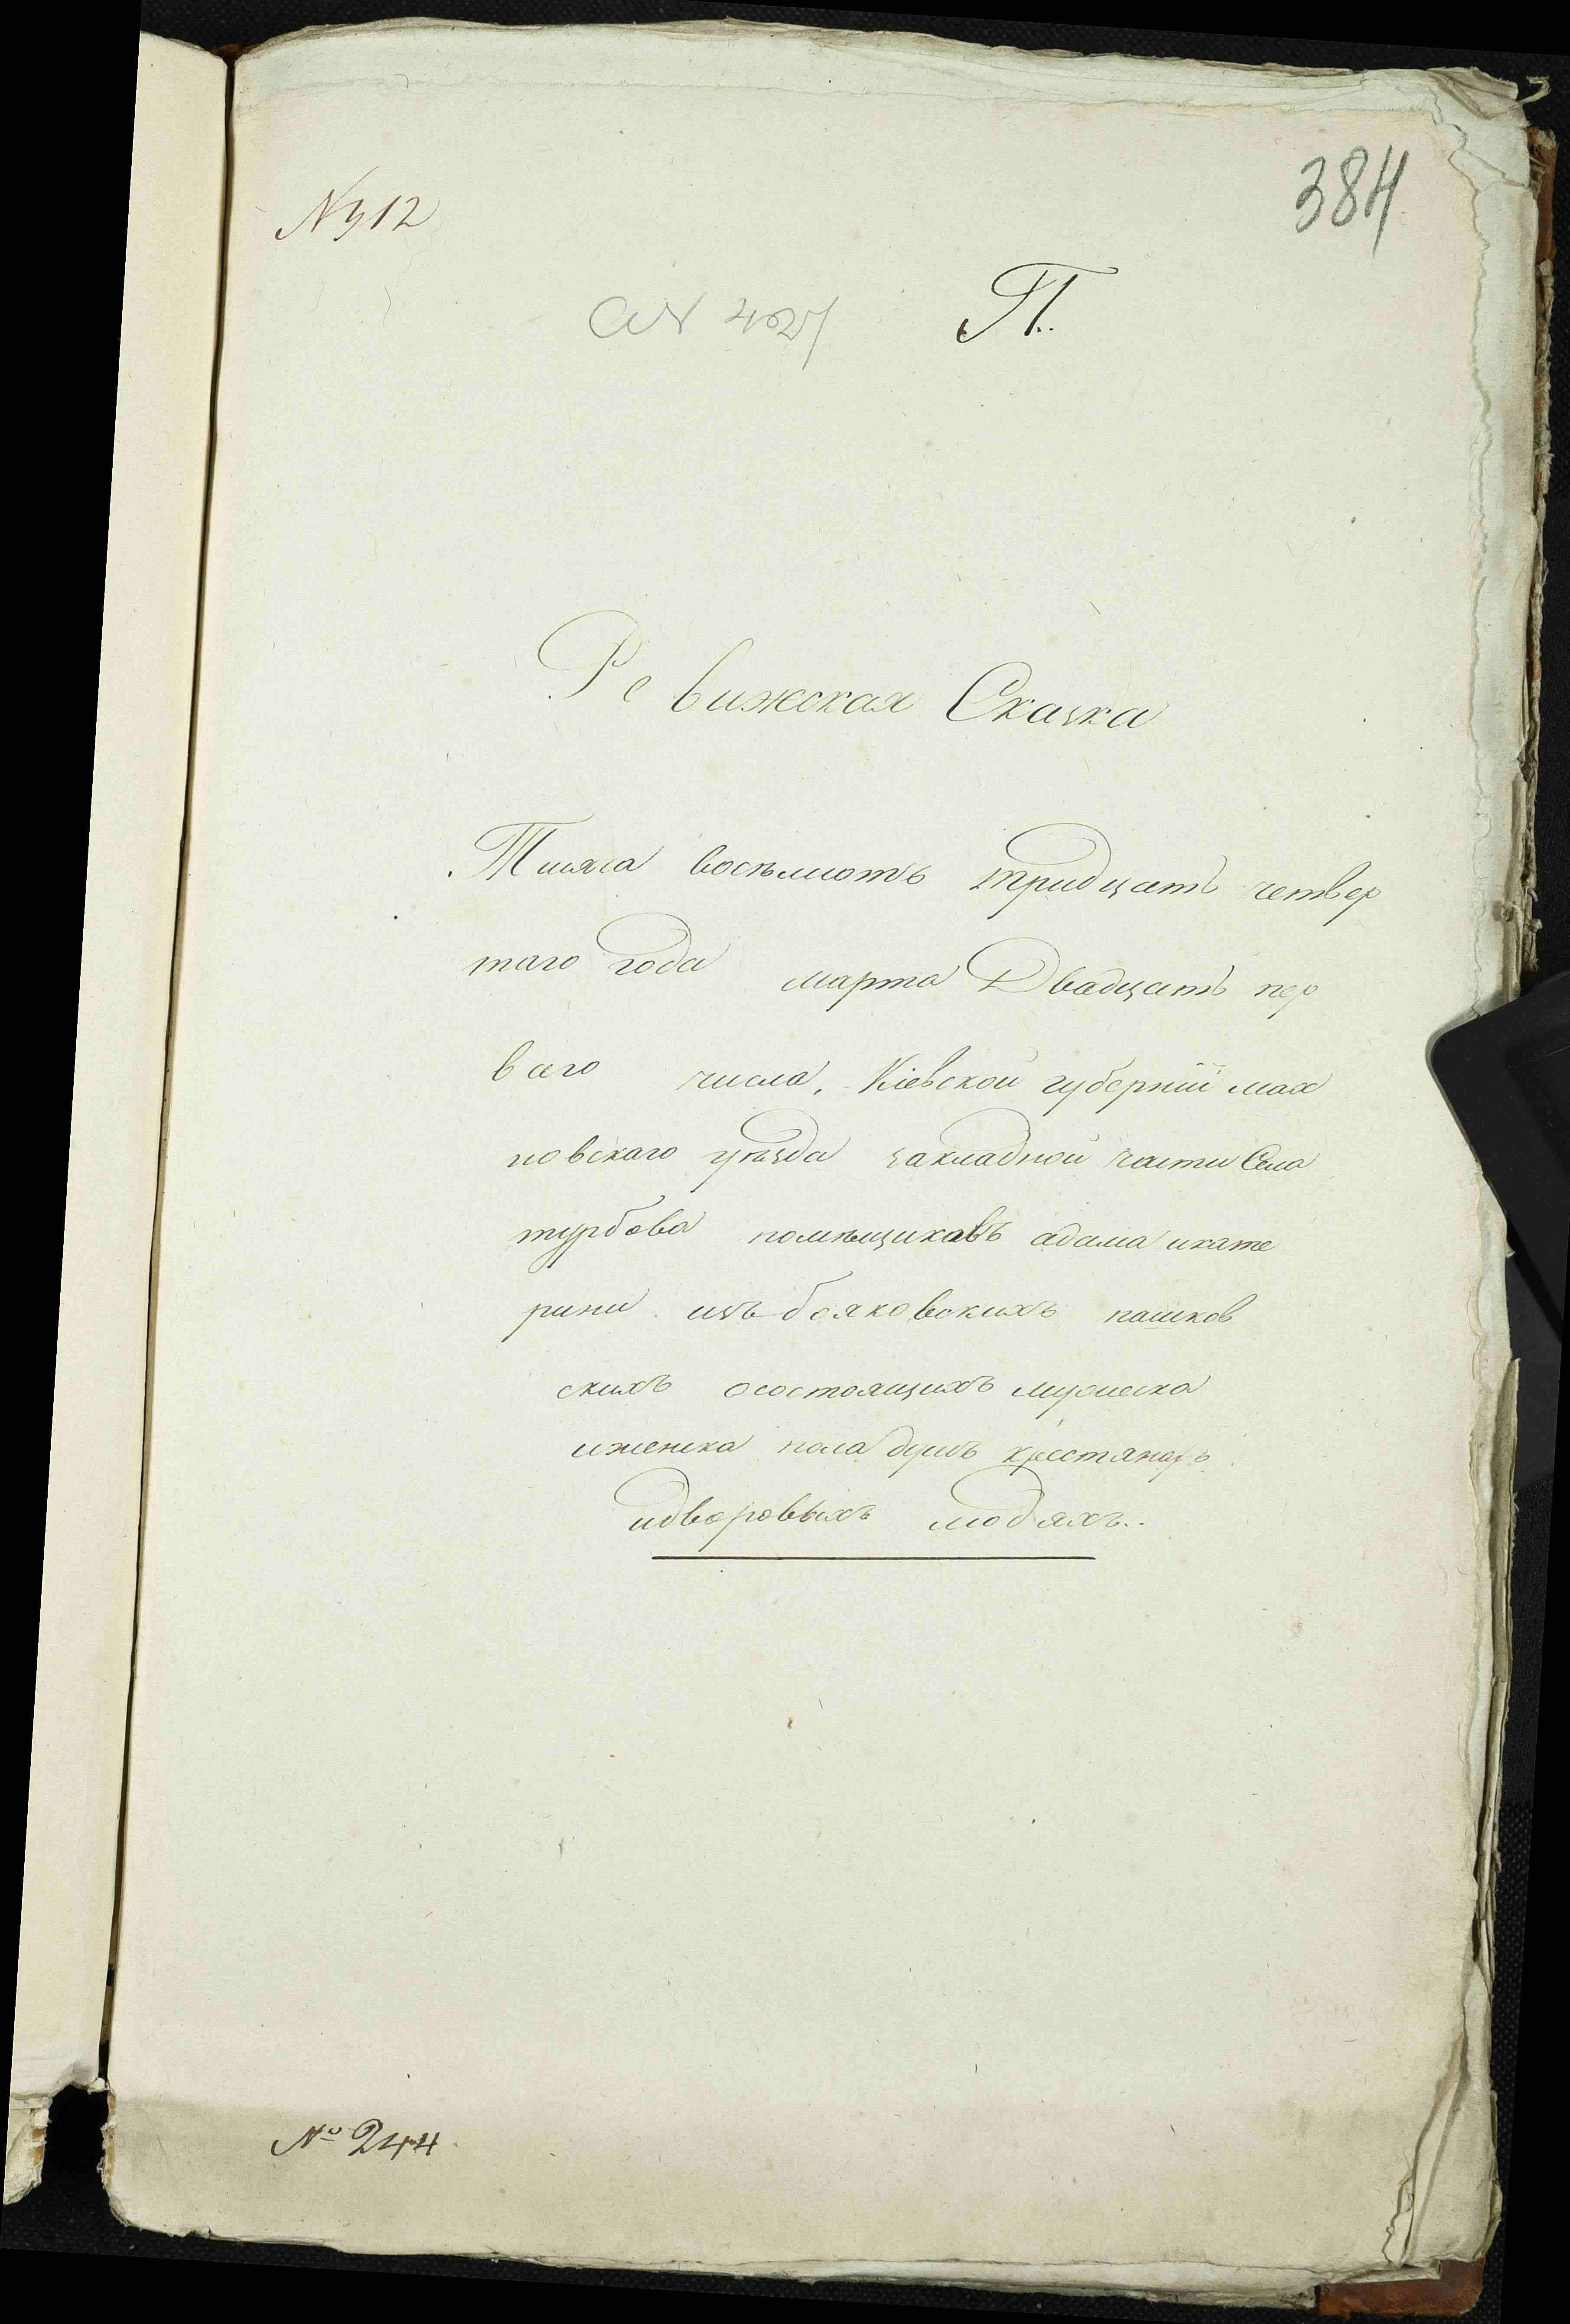 384
№ 312
П..
Ревижская Сказка
Тисяча восѣмсотъ тридцатъ четвер
таго года марта Двадцатъ пер
ваго числа, Кіевской губерніи мах
новскаго уѣзда закладной части Села
турбова помѣщиковъ адама икате
рини изъ бояковскихъ пашков
скихъ осостоящихъ мужеска
иженска пола душъ крестянахъ
идворовыхъ людяхъ..
№ 244